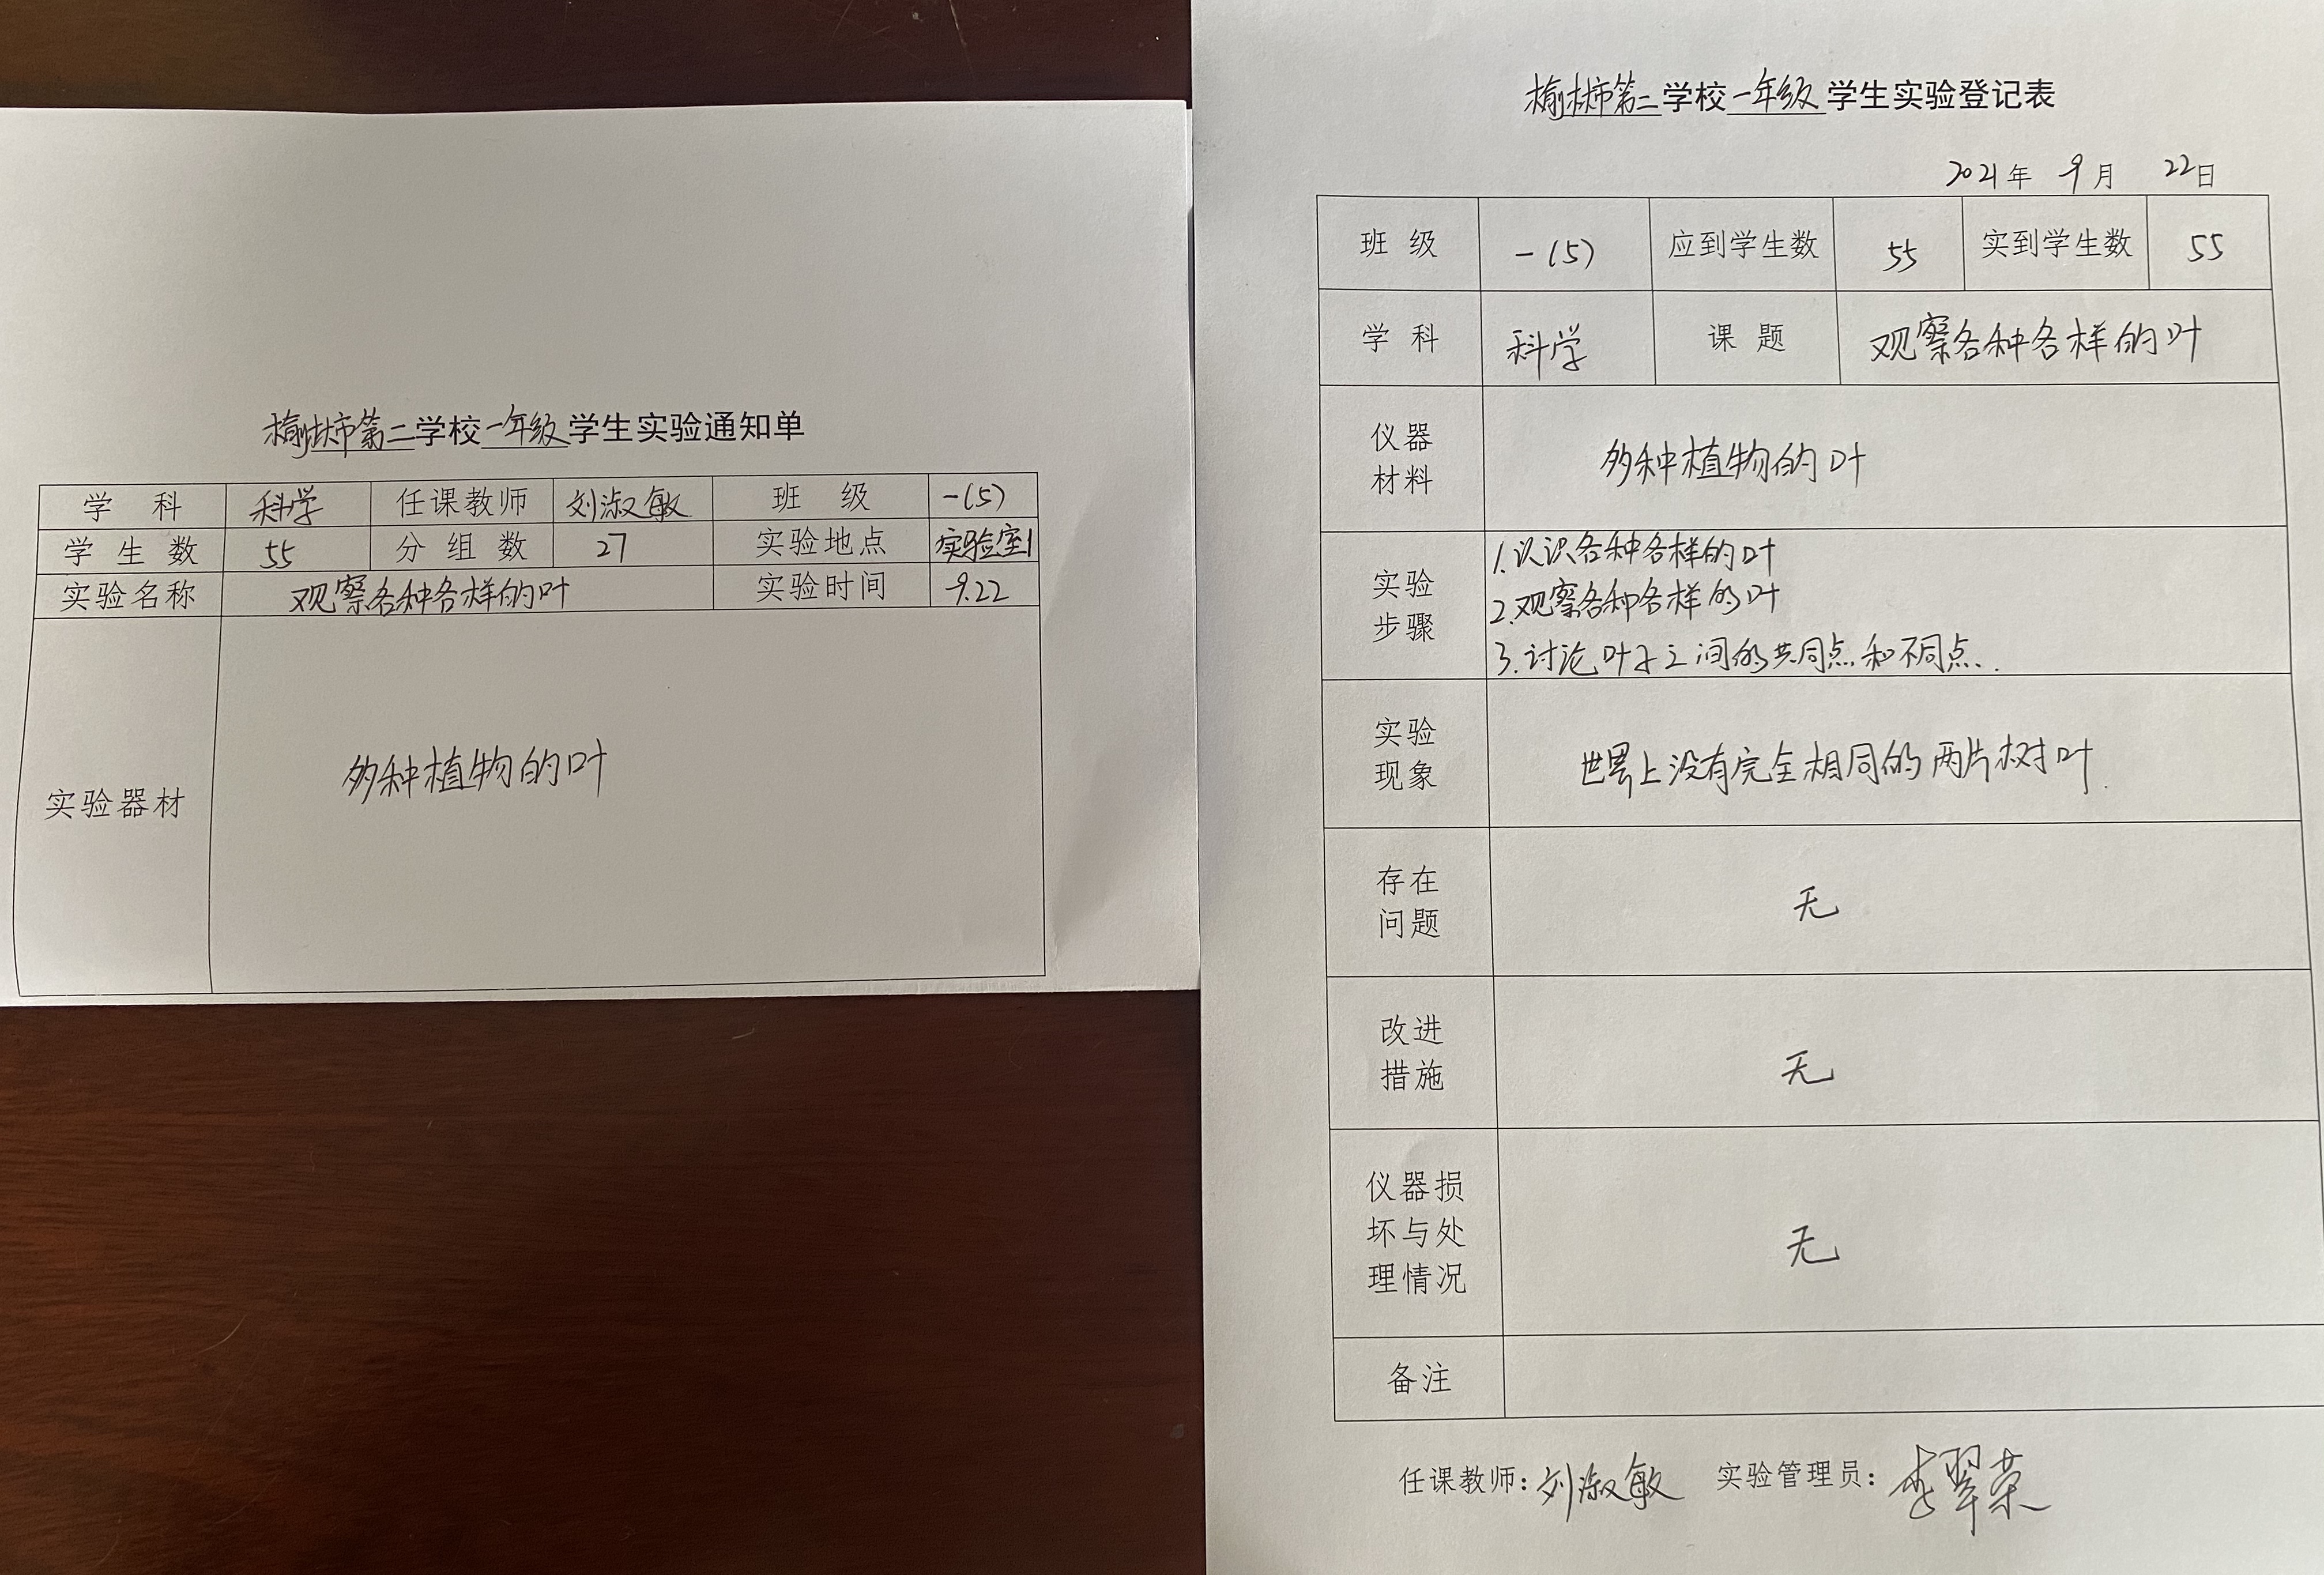 榆林市第二学校一年级学生实验通知单
学 科 科学 任课教师 刘淑敏 班 级 一(5)
学生数 55 分组数 27 实验地点 实验室1
实验名称 观察各种各样的叶 实验时间 9.22
实验器材 多种植物的叶
榆林市第二学校一年级学生实验登记表
2021年 9月 22日
班 级 一(5) 应到学生数 55 实到学生数 55
学 科 科学 课 题 观察各种各样的叶
仪器
材料
多种植物的叶
实验
步骤
1.认识各种各样的叶
2.观察各种各样的叶
3.讨论叶子之间的共同点和不同点.
实验
现象
世界上没有完全相同的两片树叶.
存在
问题
无
改进
措施
无
仪器损
坏与处
理情况
无
备注
任课教师:刘淑敏 实验管理员:李翠荣